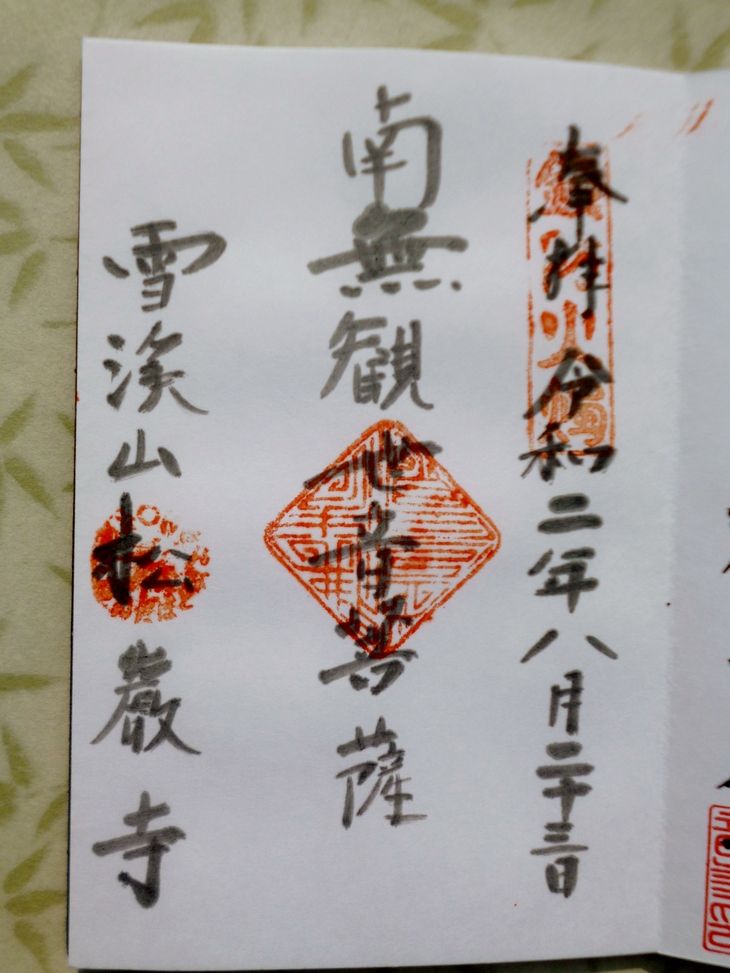 奉拝 令和二年八月二十三日
南無観世音菩薩
雪渓山 松巌寺